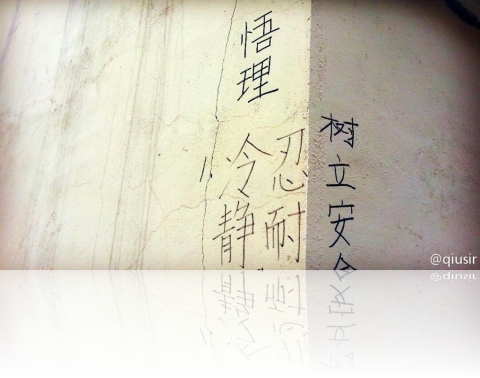 悟理
冷静
忍耐
树立安
@qiusir